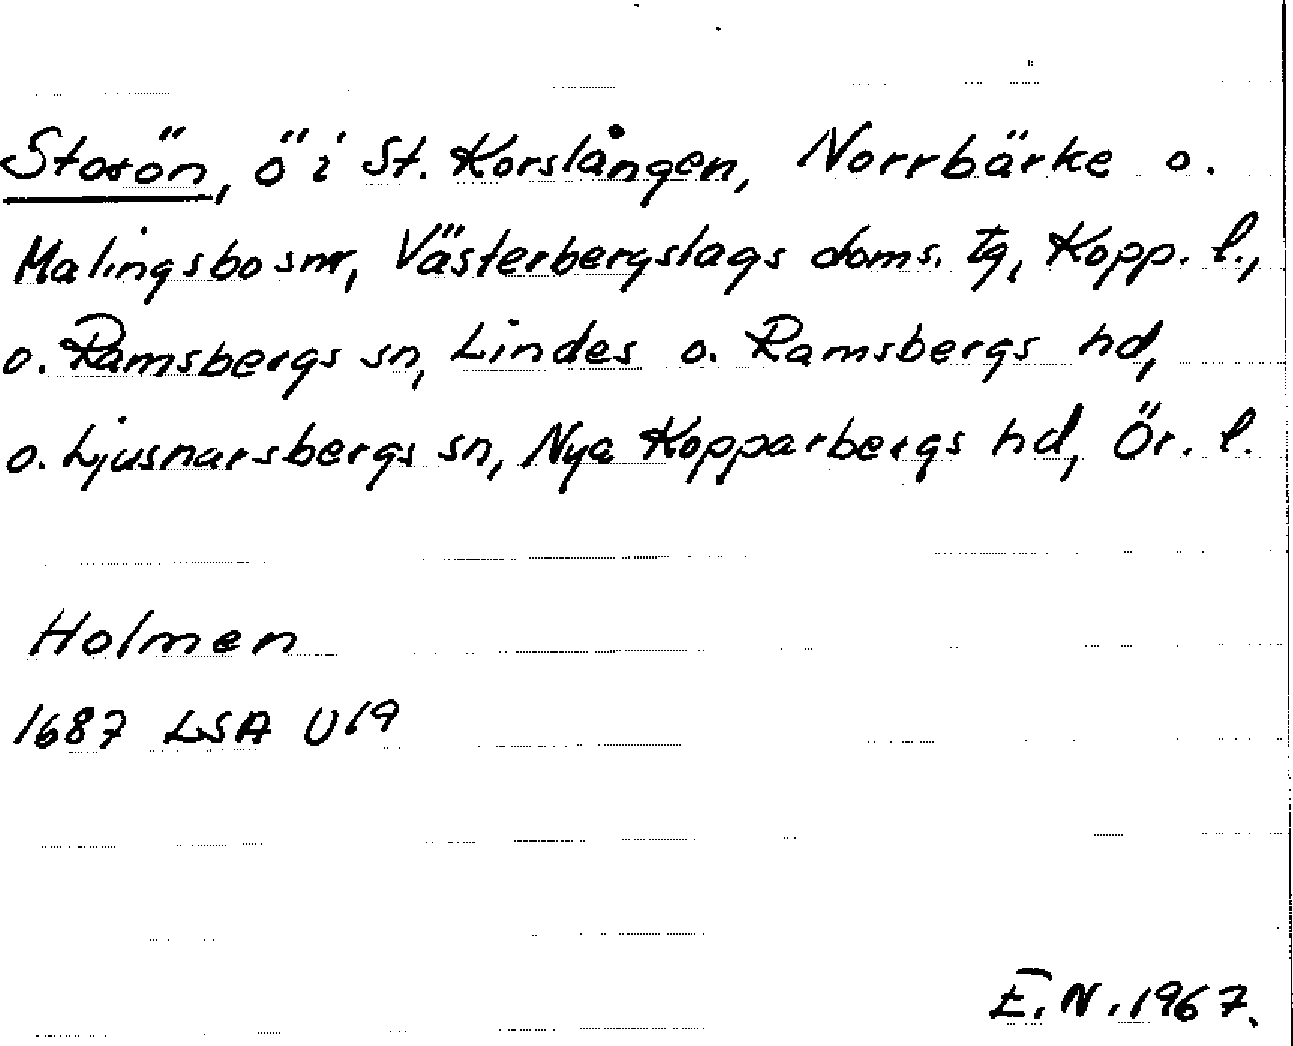 Storön, ö i St. Korslången, Norrbärke o.
Malingsbo snr, Västerbergslags doms. tg, Kopp. l.,
o. Ramsbergs sn, Lindes o. Ramsbergs hd,
o. Ljusnarsbergs sn, Nya Kopparbergs hd, Ör. l.
Holmen
1687 LSA U19
E.N. 1967.